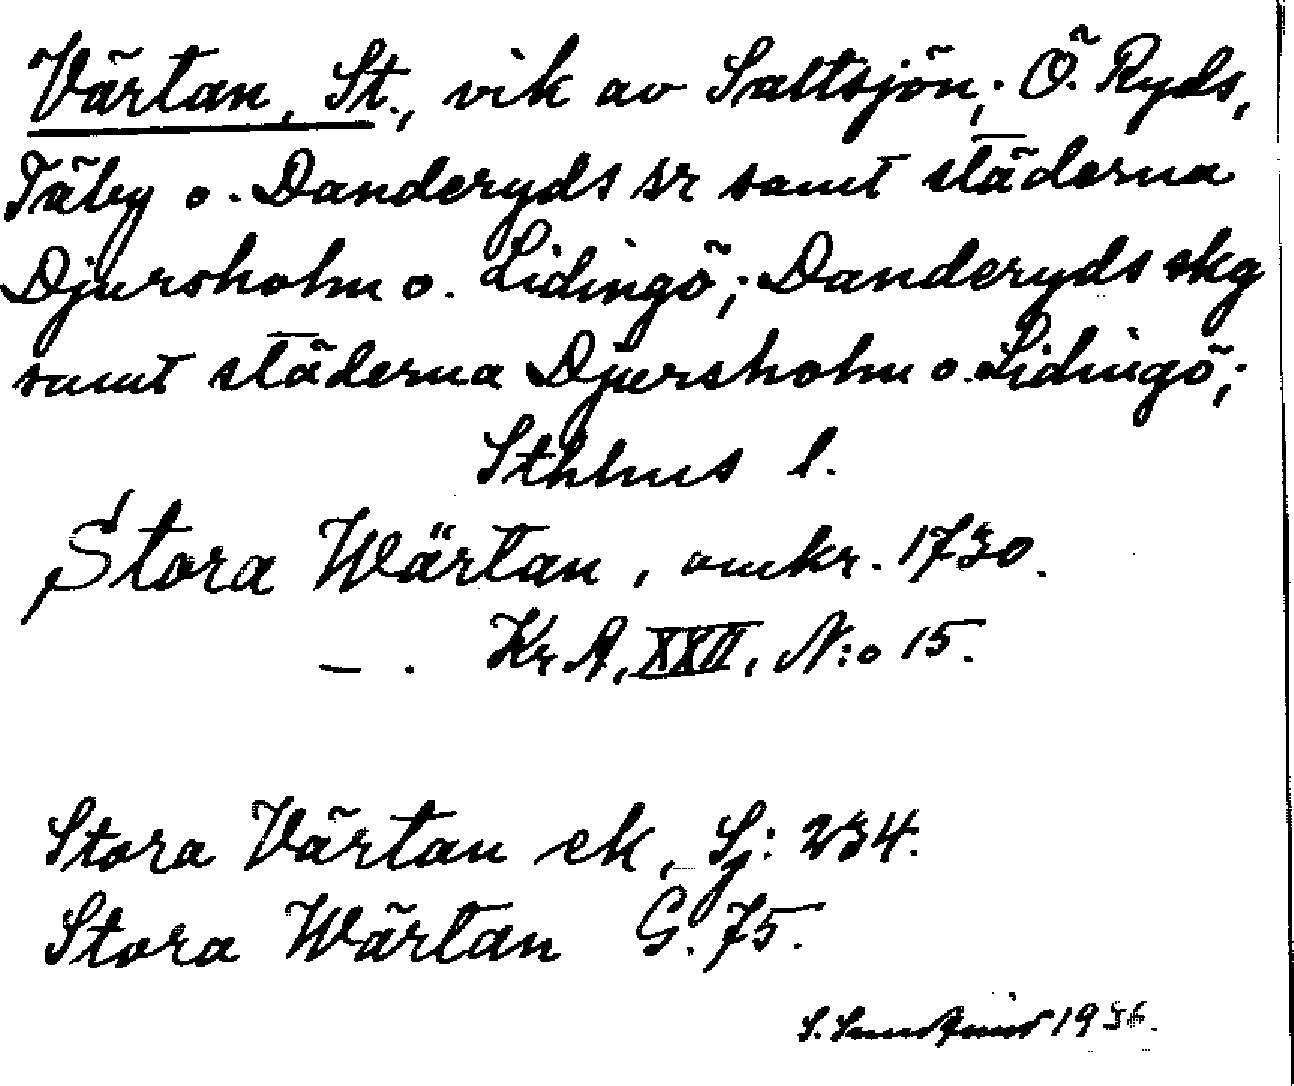 Värtan, St., vik av Saltsjön; Ö. Ryds,
Täby o. Danderyds sr samt städerna
Djursholm o. Lidingö; Danderyds skg
samt städerna Djursholm o. Lidingö;
Sthlms l.
Stora Wärtan, omkr. 1730.
— . Kr A, XXII, N:o 15.
Stora Värtan ek, Sj: 234.
Stora Wärtan G. 75.
S. 1936.